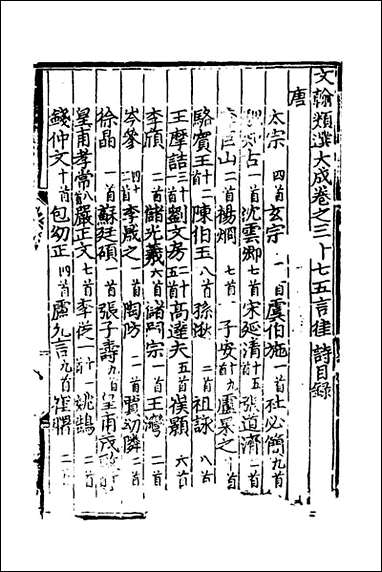 文翰類選大成卷之三十七五言律詩目錄
唐
太宗 四首 玄宗 一首 虞伯施 一首 杜必簡 九首
占 一首 沈雲卿 七首 宋延清 十五首 張道濟 一首
巨山 二首 楊烱 七首 子安 十九首 盧昇之 首
駱賓王 十二首 陳伯玉 八首 孫逖 二首 祖詠 八首
王摩詰 三十首 劉文房 二十五首 高達夫 五首 崔顥 六首
李頎 二首 儲光羲 六首 宗 一首 王灣 二首
岑參 四十首 李咸之 一首 陶防 二首 賈幼隣 二首
徐晶 一首 蘇廷碩 一首 張子壽 九首 皇甫茂
皇甫孝常 八首 嚴正文 七首 李 十一首 姚鵠 二首
錢仲文 十首 包幼正 四首 盧允言 九首 崔 二